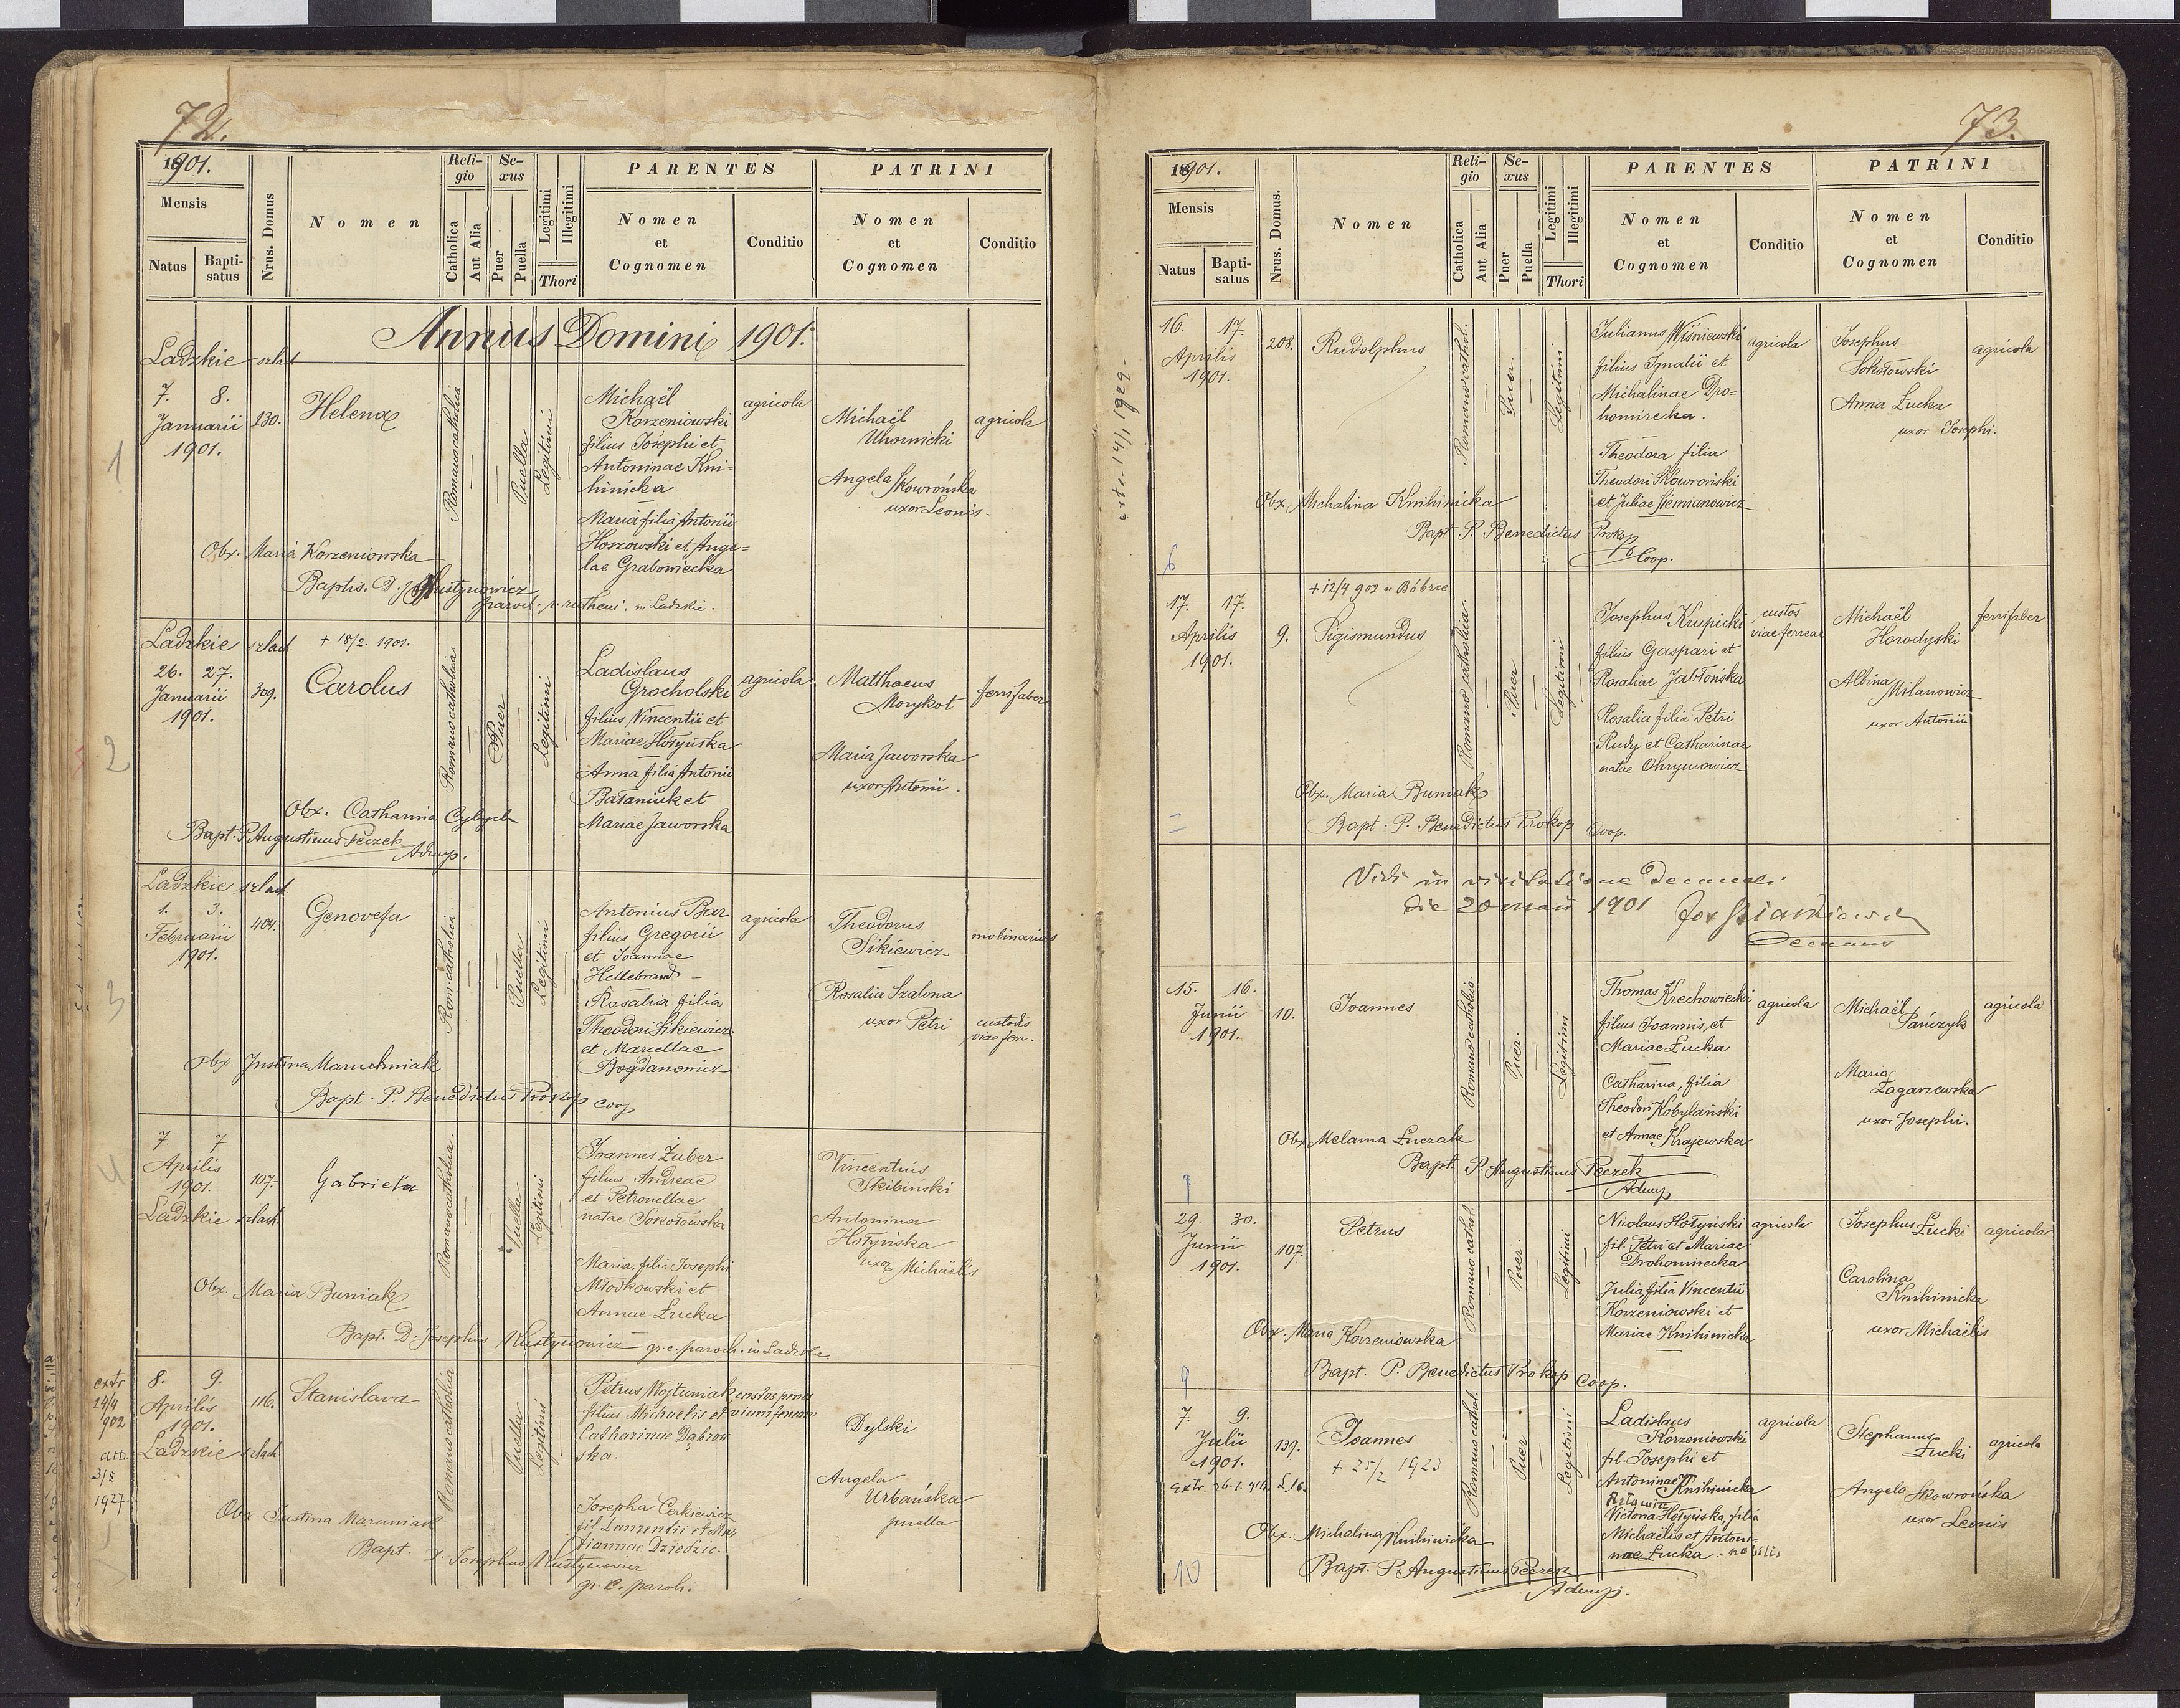 72.
1901.
Mensis
Natus
Bapti-
satus
Nrus. Domus
Nomen
Reli-
gio
Catholica
Aut Alia
Se-
xus
Puer
Puella
Legitimi
Illegitimi
Thori
PARENTES
Nomen
et
Cognomen
Conditio
PATRINI
Nomen
et
Cognomen
Conditio
Annus Domini 1901.
Ladzkie szlach
1
7. 8.
Januarii
1901.
130.
Helena
Romano catholica
Puella
Legitimi
Michaël
Korzeniowski
filius Josephi et
Antoninae Kni-
hinicka
Maria filia Antonii
Hoszowski et Ange-
lae Grabowiecka
agricola
Michaël
Uhornicki
Angela Skowrońska
uxor Leonis.
agricola
Obx. Maria Korzeniowska
Baptis. D. J. Kustynowicz
paroch. r. rutheni. in Ladzkie.
Ladzkie szlach. + 18/2. 1901.
2
26. 27.
Januarii
1901.
309.
Carolus
Romano catholica
Puer
Legitimi
Ladislaus
Grocholski
filius Vincentii et
Mariae Hołyńska
Anna filia Antonii
Bataniuk et
Mariae Jaworska
agricola
Matthaeus
Morykot
Maria Jaworska
uxor Antonii.
ferrifaber
Obx. Catharina
Bapt. P. Augustinus Peczek
Admp.
Ladzkie szlach.
3
1. 3.
Februarii
1901.
404.
Genovefa
Rom. catholica
Puella
Legitimi
Antonius Bar
filius Gregorii
et Joannae
Hellebrand
Rosalia filia
Theodori Sikiewicz
et Marcellae
Bogdanowicz
agricola
Theodorus
Sikiewicz
Rosalia Szalona
uxor Petri
molinarius
custodis
viae fer.
Obx. Justina Maruchniak
Bapt. P. Benedictus Prokop Coop
4
7. 7
Aprilis
1901.
Ladzkie szlach.
107.
Gabriela
Romano catholica.
Puella
Legitimi
Joannes Żuber
filius Andreae
et Petronellae
natae Sokołowska
Maria, filia Josephi
Młodkowski et
Annae Łucka
Vincentius
Skibiński
Antonina
Hołyńska
uxor Michaëlis
Obx. Maria Buniak
Bapt. D. Josephus Kustynowicz gr. c. paroch. in Ladzkie
extr
24/4
902
att.
3/5
1927
8. 9.
Aprilis
1901.
Ladzkie szlach
116.
Stanislava
Romano catholica
Puella
Legitimi
Petrus Wojtuniak
filius Michaelis et
Catharinae Dąbrow
ska.
Josepha Cerkiewicz
fil Laurentii et Mar
iannae Dziedzic.
custos penes
viam ferream
Dylski
Angela
Urbańska
puella
Obx Justina Maruniak
Bapt. D. Josephus Kustynowicz
gr. c. paroh.
73.
1901.
Mensis
Natus
Bapti-
satus
Nrus. Domus.
Nomen
Reli-
gio
Catholica
Aut Alia
Se-
xus
Puer
Puella
Legitimi
Illegitimi
Thori
PARENTES
Nomen
et
Cognomen
Conditio
PATRINI
Nomen
et
Cognomen
Conditio
14/1 1929
16. 17.
Aprilis
1901.
208.
Rudolphus
Romano cathol.
Puer.
Legitimi
Julianus Wiśniewski
filius Ignatii et
Michalinae Dro-
homirecka.
Theodora filia
Theodori Skowroński
et Juliae Siemianowicz
agricola
Josephus
Sokołowski
Anna Łucka
uxor Josephi.
agricola
Obx. Michalina Knihinicka
Bapt P. Benedictus Prokop
Coop.
6
+12/4 902 w Bóbrce
17. 17.
Aprilis
1901.
9.
Sigismundus
Romano catholica.
Puer
Legitimi
Josephus Krupicki
filius Gaspari et
Rosaliae Jabłońska
Rosalia filia Petri
Rudy et Catharinae
natae Ohrymowicz
custos
viae ferreae
Michaël
Horodyski
Albina Milanowicz
uxor Antonii
ferrifaber
Obx. Maria Buniak
Bapt. P. Benedictus Prokop Coop.
Vidi in visitatione decanali
die 20 maii 1901
Decanus
15. 16.
Junii
1901.
10.
Joannes
Romano catholica.
Puer.
Legitimi
Thomas Krechowiecki
filius Joannis, et
Mariae Łucka
Catharina, filia
Theodori Kobylański
et Annae Krajewska
agricola
Michaël
Pańczyk
Maria
Zagarzewska
uxor Josephi.
agricola
Obx. Melania Łuczak
Bapt. P. Augustinus Peczek
Admp
29. 30.
Junii
1901.
107.
Petrus
Romano cathol.
Puer.
Legitimi
Nicolaus Hołyński
fil. Petri et Mariae
Drohomirecka
Julia filia Vincentii
Korzeniowski et
Mariae Knihinicka
agricola
Josephus Łucki
Carolina
Knihinicka
uxor Michaëlis
agricola
Obx. Maria Korzeniowska
Bapt. P. Benedictus Prokop Coop.
9
7. 9.
Julii
1901.
139.
Joannes
+ 25/2 1923
Romano cathol.
Puer
Legitimi
Ladislaus
Korzeniowski
fil. Josephi et
Antoninae Knihinicka
Victoria Hołyńska, filia
Michaëlis et Antoni-
nae Łucka. nobilis
agricola
Stephanus
Łucki
Angela Skowrońska
uxor Leonis
agricola
Obx. Michalina Knihinicka
Bapt. P. Augustinus Peczek
Admp.
10